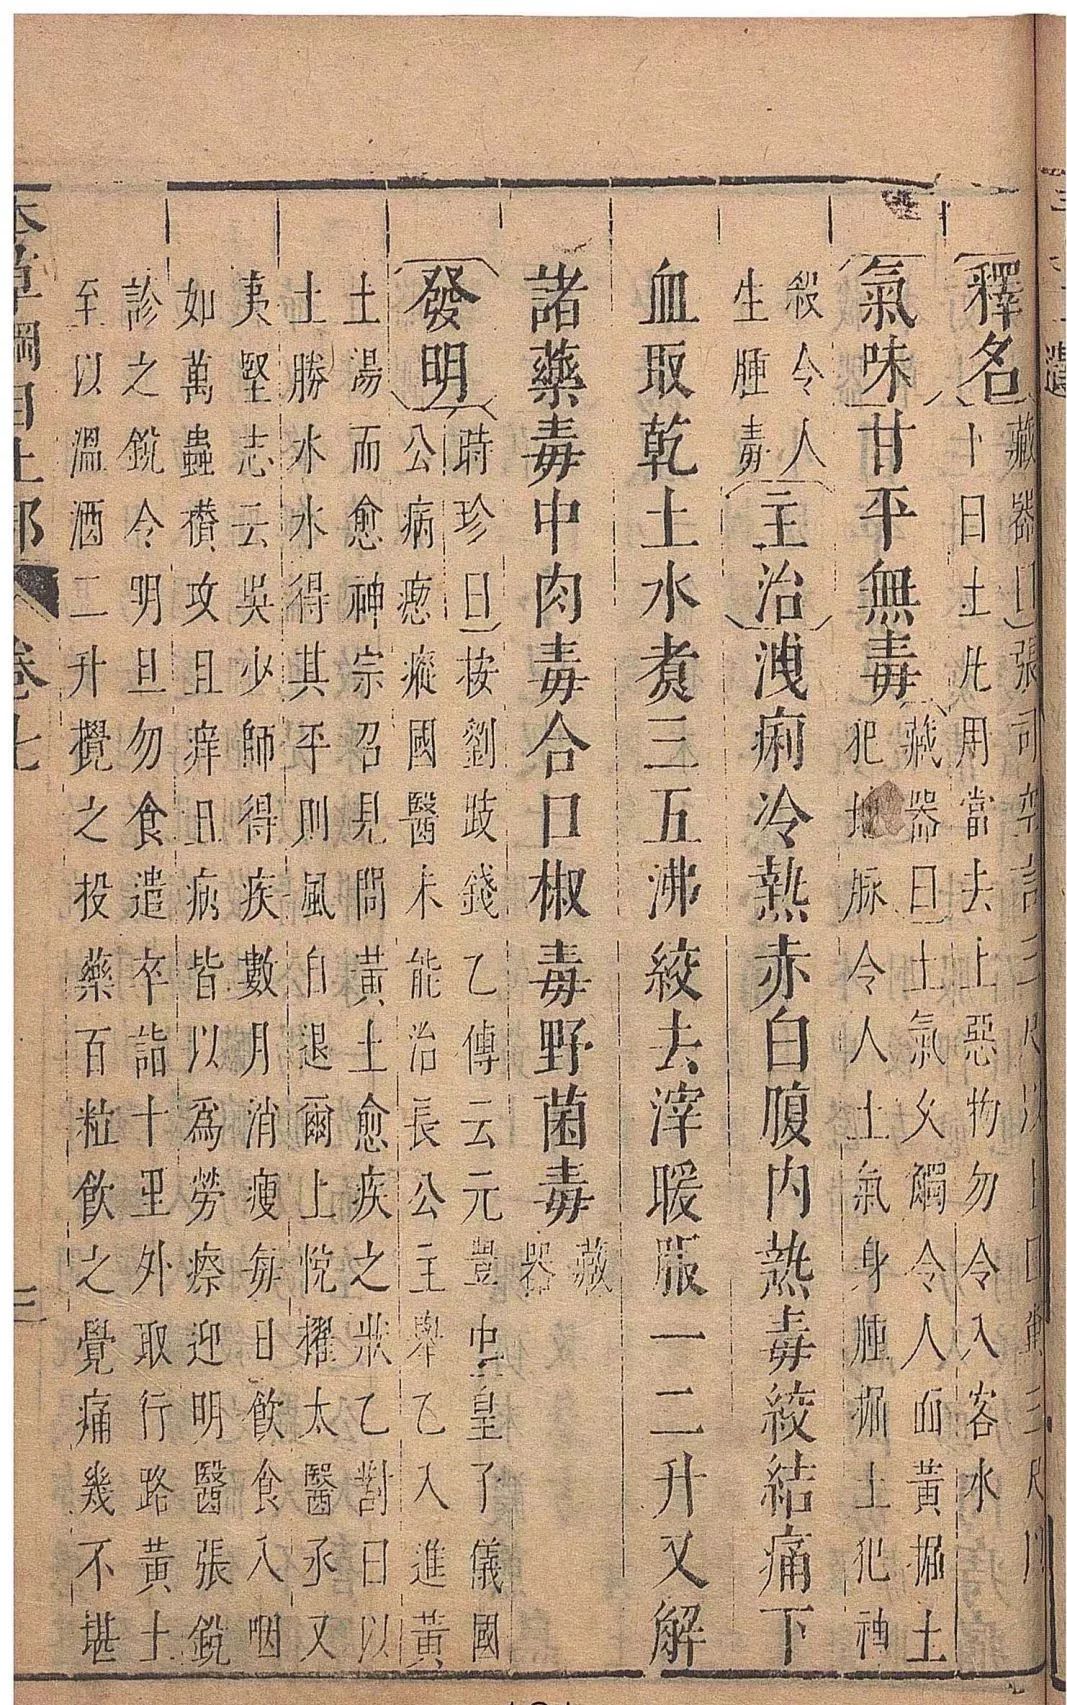 釋名
藏器曰張司空言三尺以上曰糞三尺以
下曰土凡用當去上惡物勿令入客水
氣味甘平無毒
藏器曰土氣久觸令人面黃掘土
犯地脉令人上氣身腫掘土犯神
殺令人
生腫毒
主治洩痢冷熱赤白腹内熱毒絞結痛下
血取乾土水煑三五沸絞去滓暖服一二升又解
諸藥毒中肉毒合口椒毒野菌毒
藏
器
發明
時珍曰按劉跂錢乙傳云元豐中皇子儀國
公病瘛瘲國醫未能治長公主舉乙入進黃
土湯而愈神宗召見問黃土愈疾之狀乙對曰以
土勝水水得其平則風自退爾上悅擢太醫丞又
夷堅志云吳少師得疾數月消瘦每日飲食入咽
如萬蟲攢攻且痒且痛皆以為勞瘵迎明醫張銳
診之銳令明旦勿食遣卒詣十里外取行路黃土
至以溫酒二升攪之投藥百粒飲之覺痛幾不堪
本草綱目土部 卷七
三